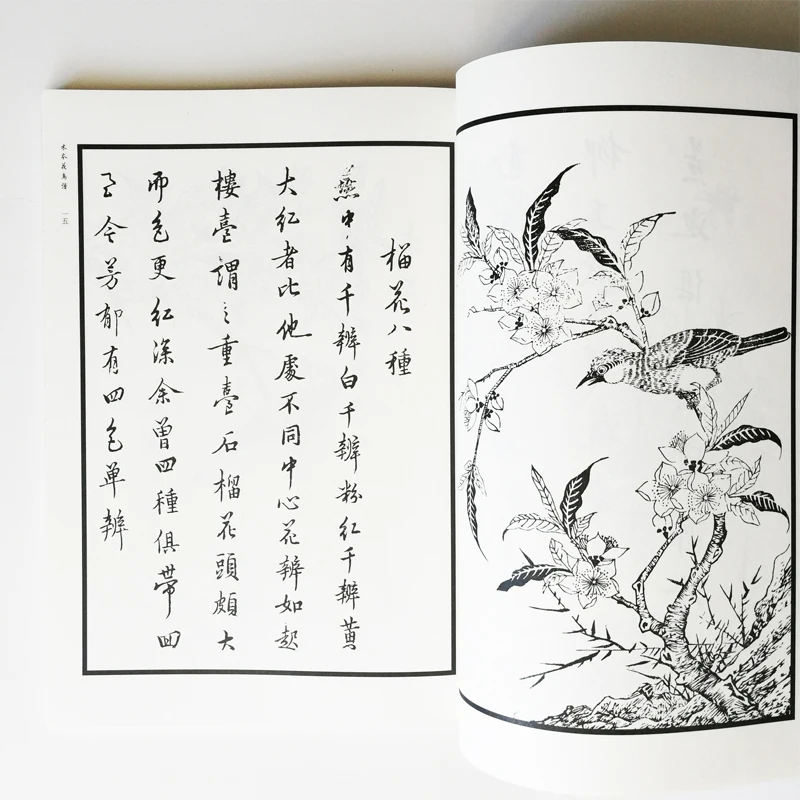 榴花八種
燕中有千瓣白千瓣粉紅千瓣黄
大紅者比他處不同中心花瓣如起
樓臺謂之重臺石榴花頭頗大
而色更紅深余曾四種俱帶回
至今芳郁有四色单瓣
木本花鳥譜
一五